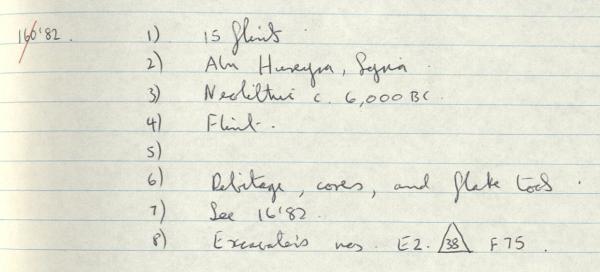 160'82. 1) 15 flints
2) Abu Hureyra, Syria
3) Neolithic c. 6,000 BC.
4) Flint.
5)
6) Debitage, cores, and flake tools.
7) See 16'82.
8) Excavators nos. E2. 38 F75.